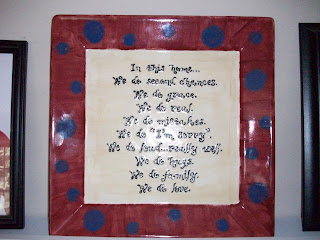 In this home...
We do second chances.
We do grace.
We do real.
We do mistakes.
We do "I'm sorry".
We do loud...really well.
We do hugs.
We do family.
We do love.